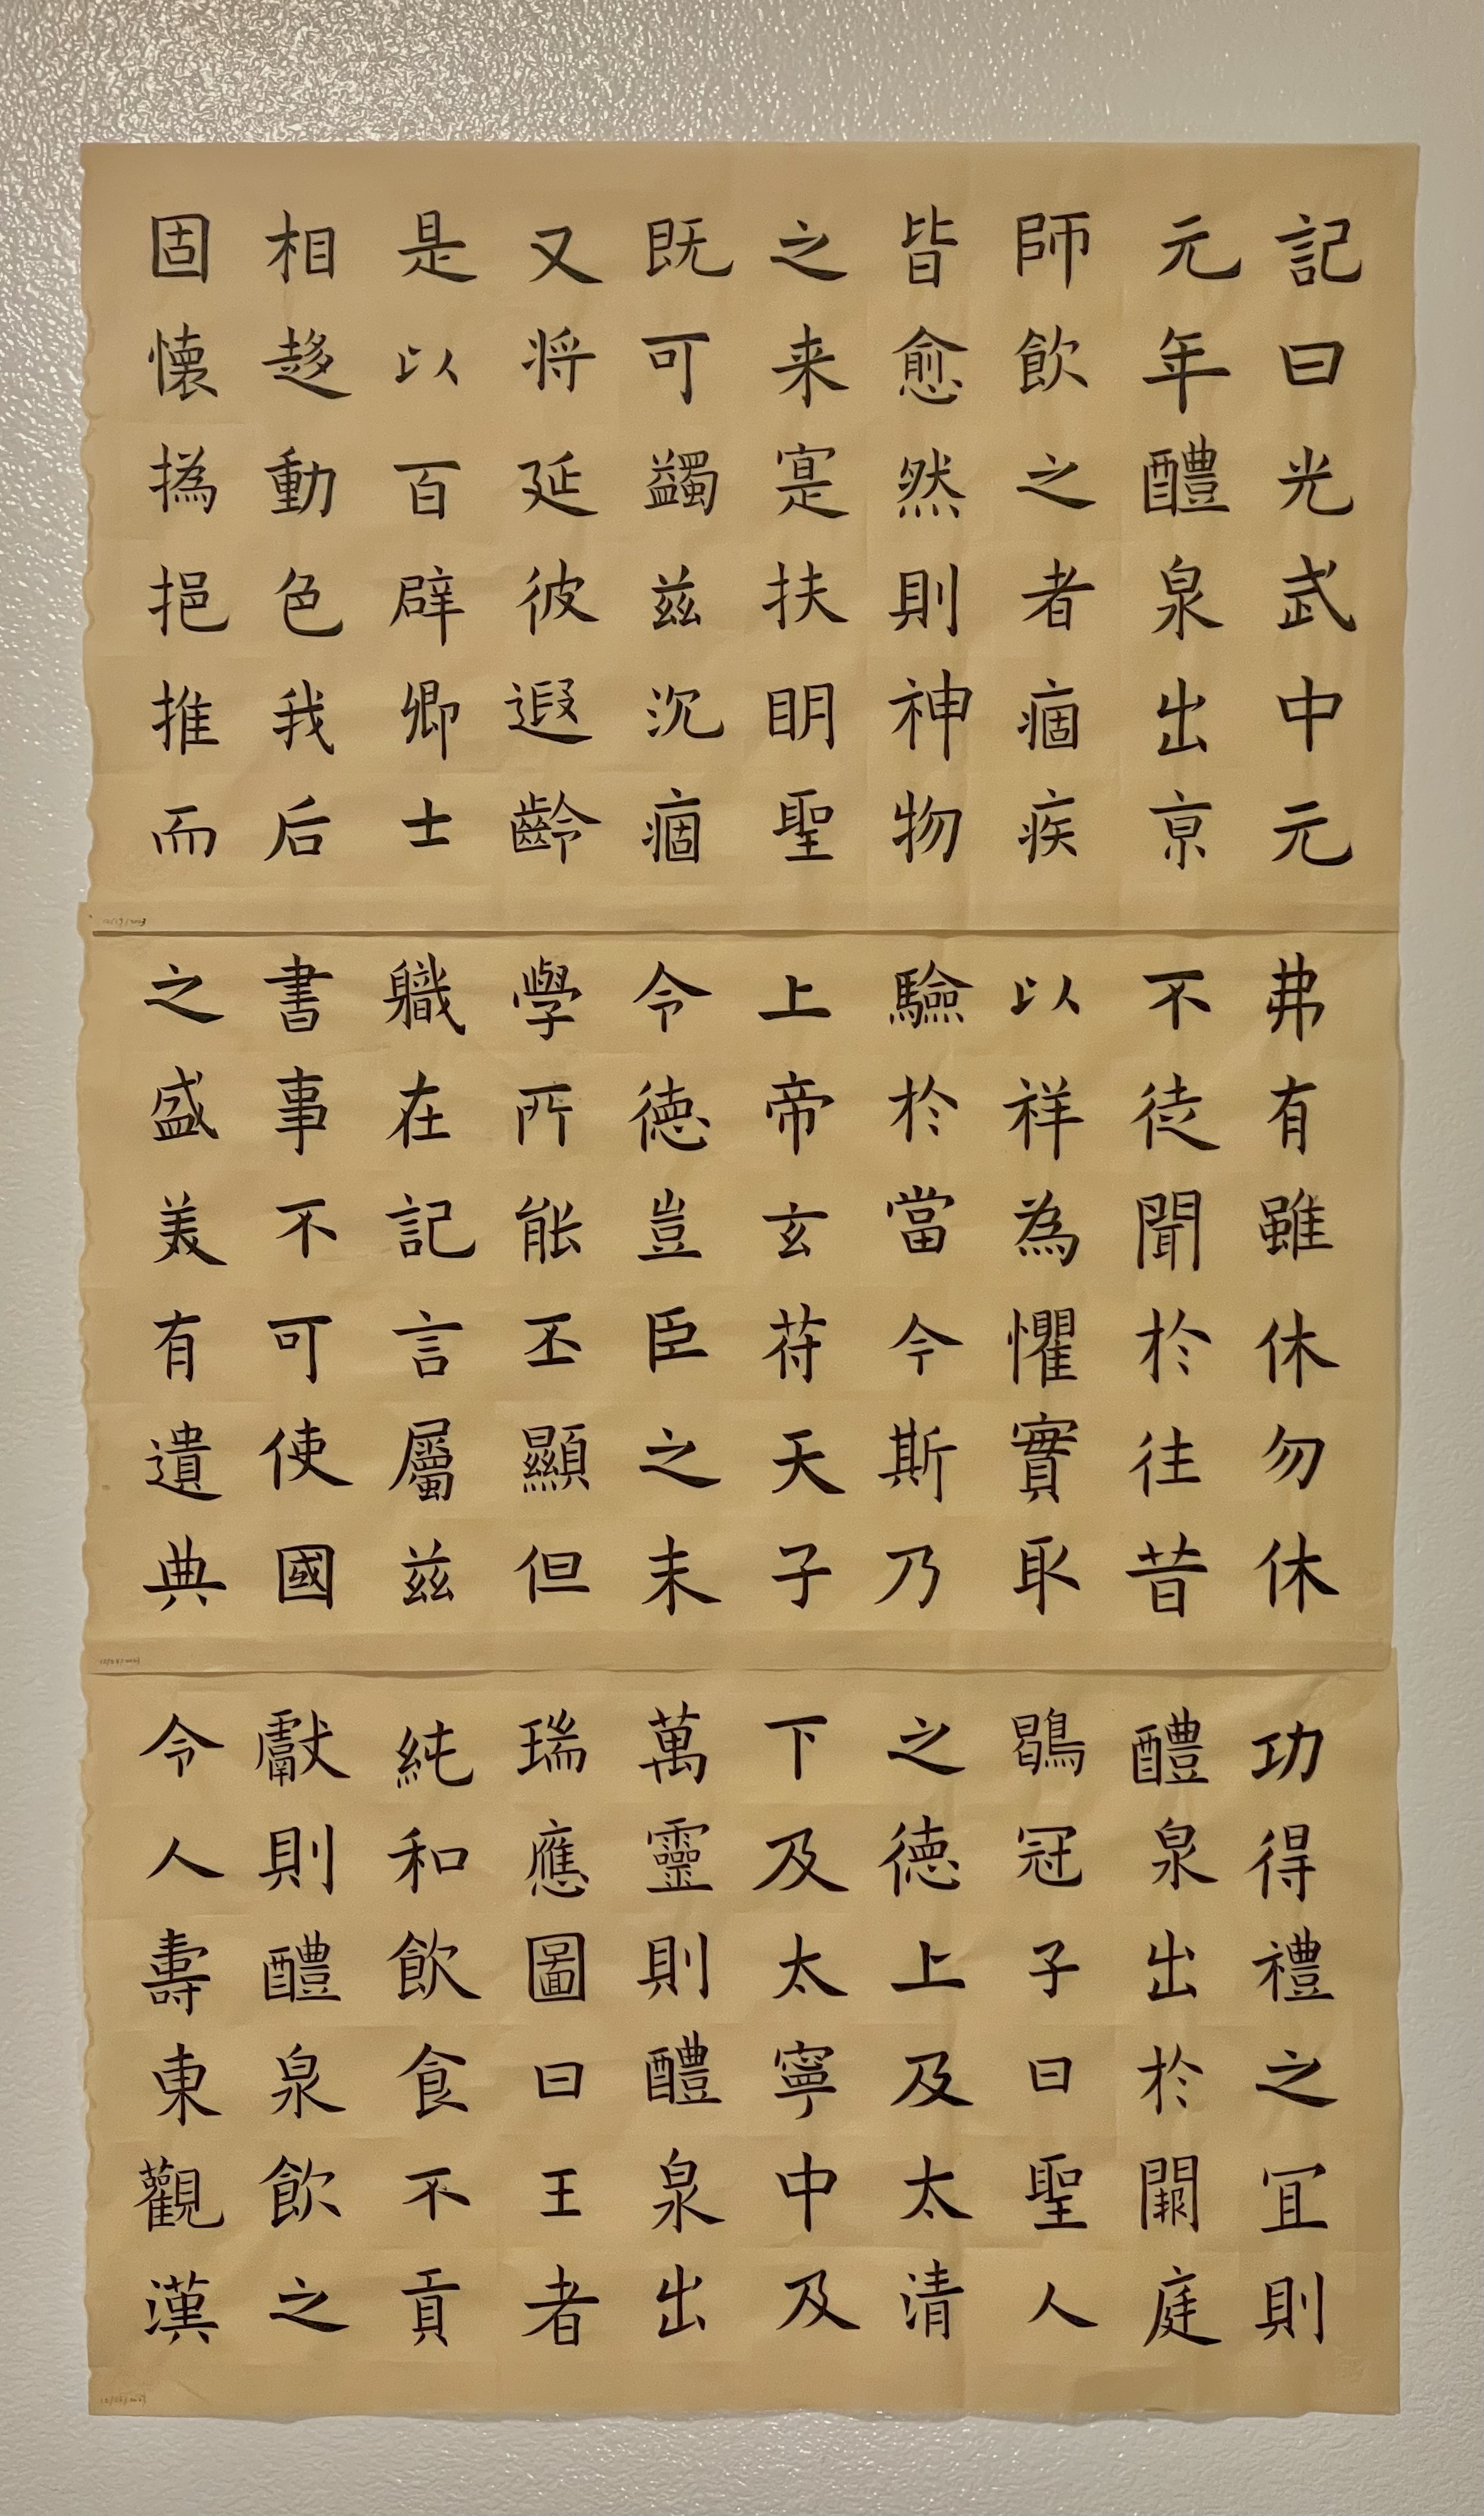 記曰光武中元
元年醴泉出京
師飲之者痼疾
皆愈然則神物
之来寔扶明聖
既可蠲兹沉痼
又将延彼遐齡
是以百辟卿士
相趍動色我后
固懐撝挹推而
弗有雖休勿休
不徒聞於往昔
以祥為懼實取
驗於當今斯乃
上帝玄苻天子
令徳豈臣之末
學所能丕顯但
職在記言屬兹
書事不可使國
之盛美有遺典
功得禮之宜則
醴泉出於闕庭
鶡冠子曰聖人
之徳上及太清
下及太寧中及
萬靈則醴泉出
瑞應圖曰王者
純和飲食不貢
獻則醴泉飲之
令人壽東觀漢